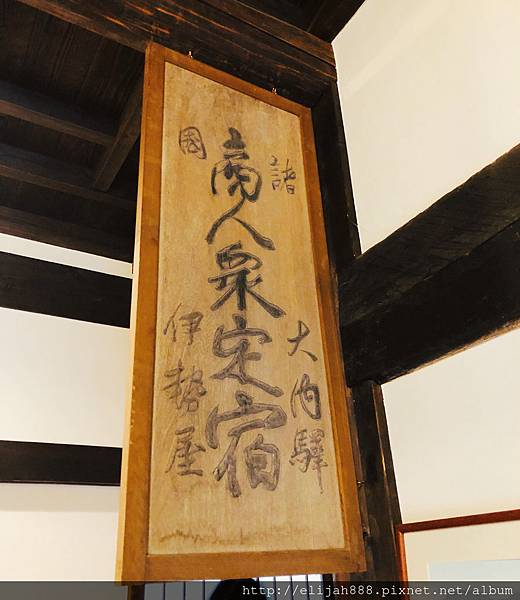 諸國
商人衆定宿
大内驛
伊勢屋
http://elijah888.pixnet.net/album